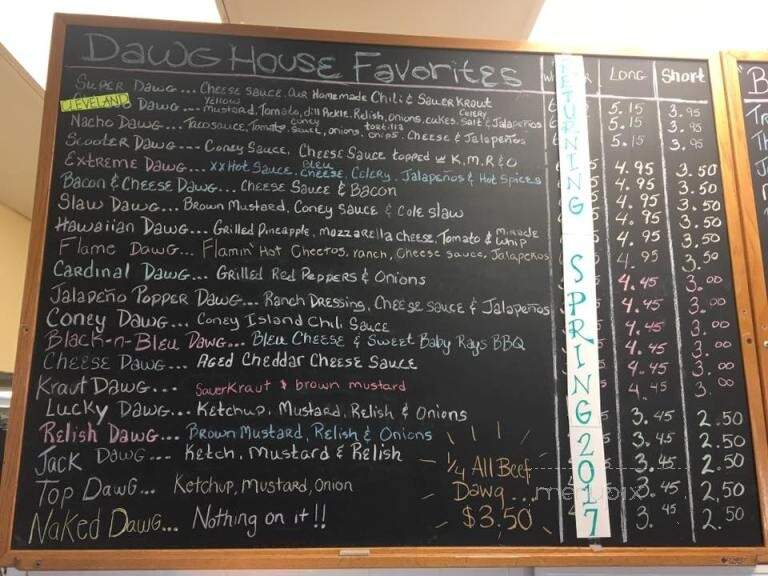 Dawg House Favorites Long Short
Super Dawg... Cheese sauce, Our Homemade Chili & Sauerkraut 5.15 3.95
Yellow
Cleveland Dawg... Mustard, Tomato, dill Pickle, Relish, onions, cukes, Celery Salt & Jalapeños 5.15 3.95
Nacho Dawg... Taco sauce, Tomato, onions, tortilla chips, Cheese & Jalapeños 5.15 3.95
Scooter Dawg... Coney Sauce, Cheese Sauce topped w K,M,R&O
Extreme Dawg... xx Hot Sauce, Bleu Cheese, Celery, Jalapeños & Hot Spices 4.95 3.50
Bacon & Cheese Dawg... Cheese Sauce & Bacon 4.95 3.50
Slaw Dawg... Brown Mustard, Coney Sauce & Cole slaw 4.95 3.50
Hawaiian Dawg... Grilled Pineapple, Mozzarella cheese, Tomato & Miracle Whip 4.95 3.50
Flame Dawg... Flamin' Hot Cheetos, ranch, cheese sauce, Jalapeños 4.95 3.50
Cardinal Dawg... Grilled Red Peppers & Onions 4.45 3.00
Jalapeño Popper Dawg... Ranch Dressing, Cheese sauce & Jalapeños 4.45 3.00
Coney Dawg... Coney Island Chili Sauce 4.45 3.00
Black-n-Bleu Dawg... Bleu Cheese & Sweet Baby Rays BBQ 4.45 3.00
Cheese Dawg... Aged Cheddar Cheese Sauce 4.45 3.00
Kraut Dawg... Sauerkraut & brown mustard 4.45 3.00
Lucky Dawg... Ketchup, Mustard, Relish & Onions 3.45 2.50
Relish Dawg... Brown Mustard, Relish & Onions 3.45 2.50
Jack Dawg... Ketch, Mustard & Relish 3.45 2.50
Top Dawg... Ketchup, Mustard, Onion 3.45 2.50
Naked Dawg... Nothing on it!! 3.45 2.50
1/4 All Beef
Dawg...
$3.50
RETURNING SPRING 2017
menupix